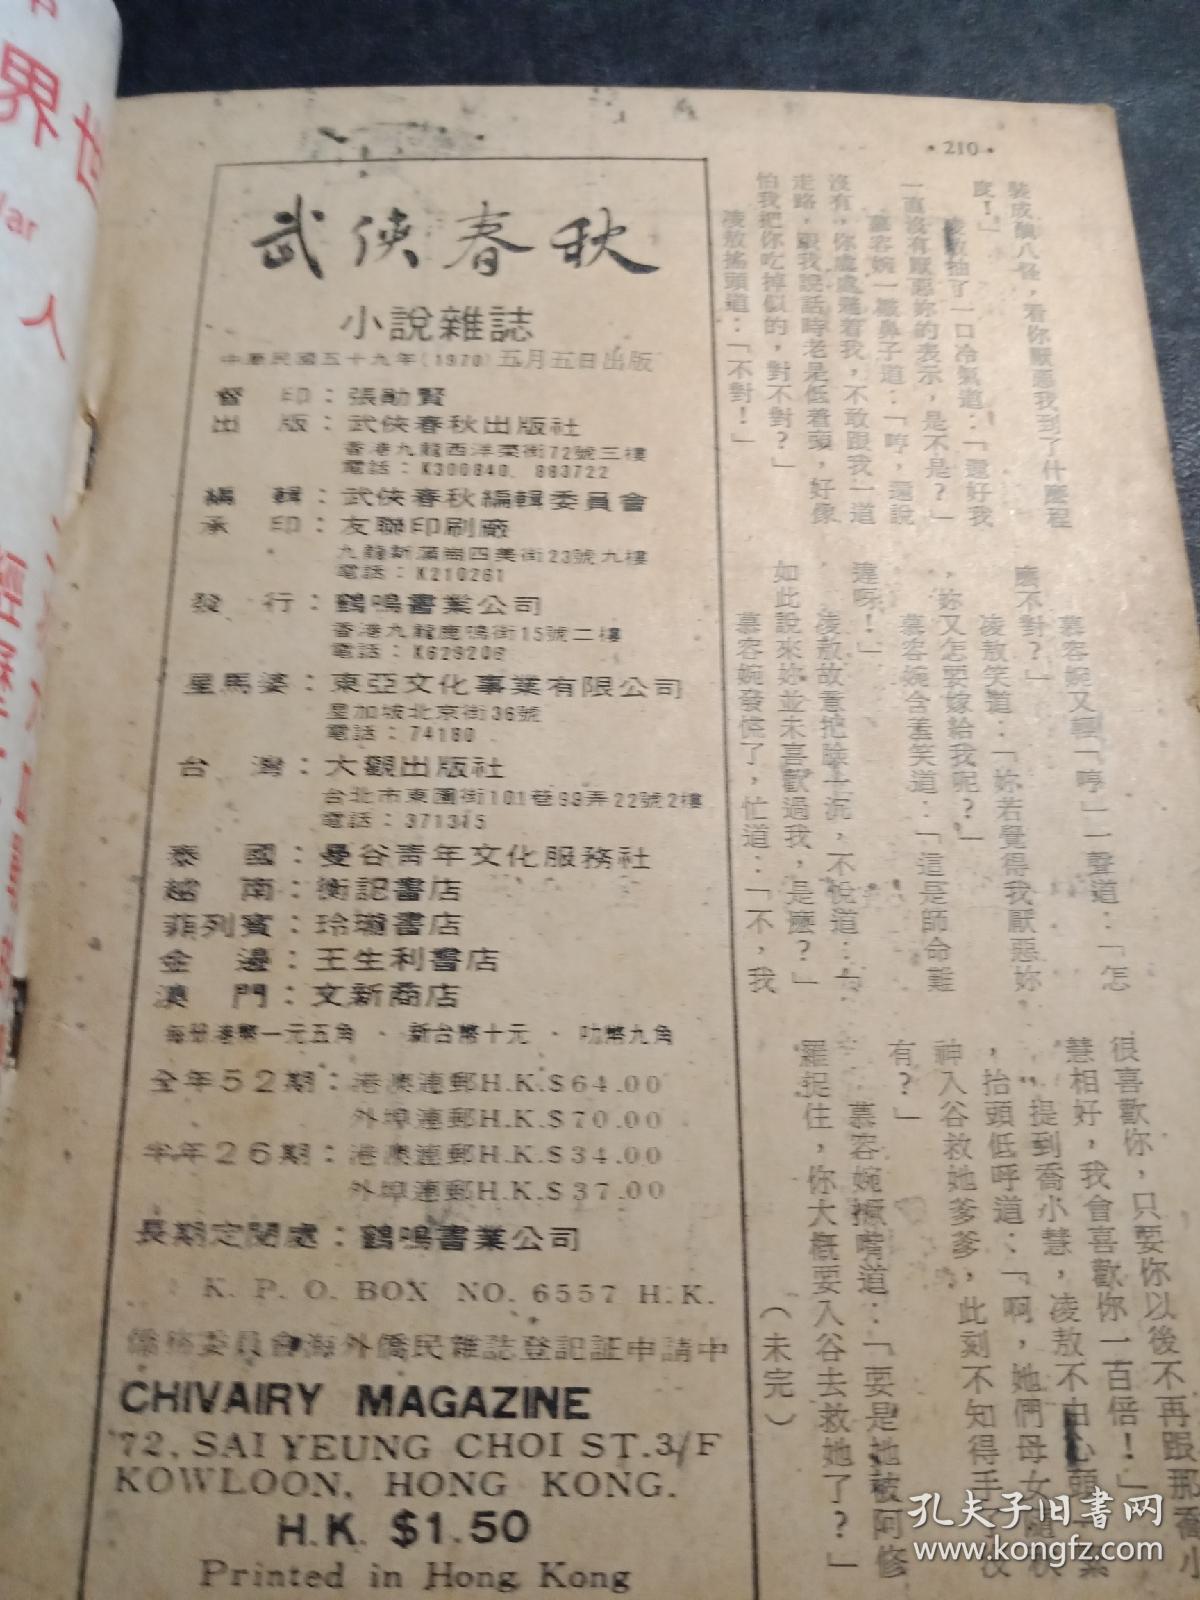 ·210·
裝成醜八怪，看你厭惡我到了什麼程
度！」
凌敖抽了一口冷氣道：「還好我
一直沒有厭惡妳的表示，是不是？」
慕容婉一皺鼻子道：「哼，還說
沒有，你處處避着我，不敢跟我一道
走路，跟我說話時老是低着頭，好像
怕我把你吃掉似的，對不對？」
凌敖搖頭道：「不對！」
慕容婉又輕「哼」一聲道：「怎
麼不對？」
凌敖笑道：「妳若覺得我厭惡妳
，妳又怎要嫁給我呢？」
慕容婉含羞笑道：「這是師命難
違呀！」
凌敖故意把臉一沉，不悅道：「
如此說來妳並未喜歡過我，是麼？」
慕容婉發慌了，忙道：「不，我
很喜歡你，只要你以後不再跟那喬小
慧相好，我會喜歡你一百倍！」
提到喬小慧，凌敖不由心頭一緊
，抬頭低呼道：「啊，她們母女隨
神入谷救她爹爹，此刻不知得手
有？」
慕容婉撅嘴道：「要是她被阿修
羅捉住，你大概要入谷去救她了？」
（未完）
武俠春秋
小說雜誌
中華民國五十九年(1970)五月五日出版
督印：張勛賢
出版：武俠春秋出版社
香港九龍西洋菜街72號三樓
電話：K300840. 883722
編輯：武俠春秋編輯委員會
承印：友聯印刷廠
九龍新蒲崗四美街23號九樓
電話：K210261
發行：鶴鳴書業公司
香港九龍鹿鳴街15號二樓
電話：K629206
星馬婆：東亞文化事業有限公司
星加坡北京街36號
電話：74180
台灣：大觀出版社
台北市東園街101巷99弄22號2樓
電話：371345
泰國：曼谷青年文化服務社
越南：衡記書店
菲列賓：玲瓏書店
金邊：王生利書店
澳門：文新商店
每冊港幣一元五角 · 新台幣十元 · 叻幣九角
全年52期：港澳連郵H.K.$64.00
外埠連郵H.K.$70.00
半年26期：港澳連郵H.K.$34.00
外埠連郵H.K.$37.00
長期定閱處：鶴鳴書業公司
K. P. O. BOX NO. 6557 H.K.
僑務委員會海外僑民雜誌登記証申請中
CHIVAIRY MAGAZINE
72, SAI YEUNG CHOI ST.3/F
KOWLOON, HONG KONG.
H.K. $1.50
Printed in Hong Kong
界世
人
孔夫子旧書网
www.kongfz.com